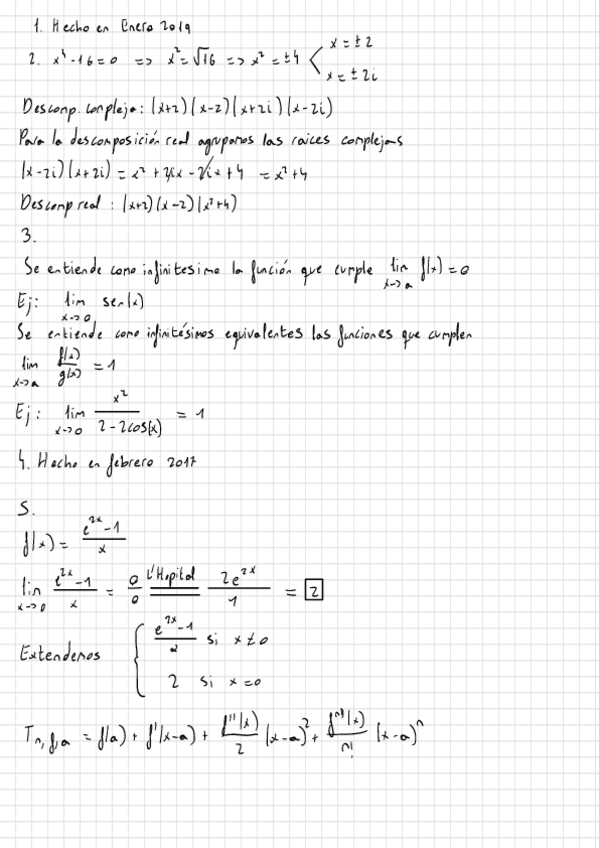 1. Hecho en Enero 2019
2. x⁴-16=0 => x²=√16 => x²=±4 < x=±2
x=±2i
Descomp. compleja: (x+2)(x-2)(x+2i)(x-2i)
Para la descomposición real agrupamos las raíces complejas
(x-2i)(x+2i) = x² + 2ix - 2ix + 4 = x²+4
Descomp real: (x+2)(x-2)(x²+4)
3.
Se entiende como infinitesimo la función que cumple lim x->a f(x)=0
Ej: lim x->0 sen(x)
Se entiende como infinitésimos equivalentes las funciones que cumplen
lim x->a f(x)/g(x) = 1
Ej: lim x->0 x²/(2-2cos(x)) = 1
4. Hecho en febrero 2017
5.
f(x) = (e²ˣ-1)/x
lim x->0 (e²ˣ-1)/x = 0/0 L'Hopital 2e²ˣ/1 = 2
Extendemos { (e²ˣ-1)/2 si x≠0
2 si x=0
Tn,f,a = f(a) + f'(x-a) + f''(x)/2 (x-a)² + fⁿ⁾(x)/n! (x-a)ⁿ